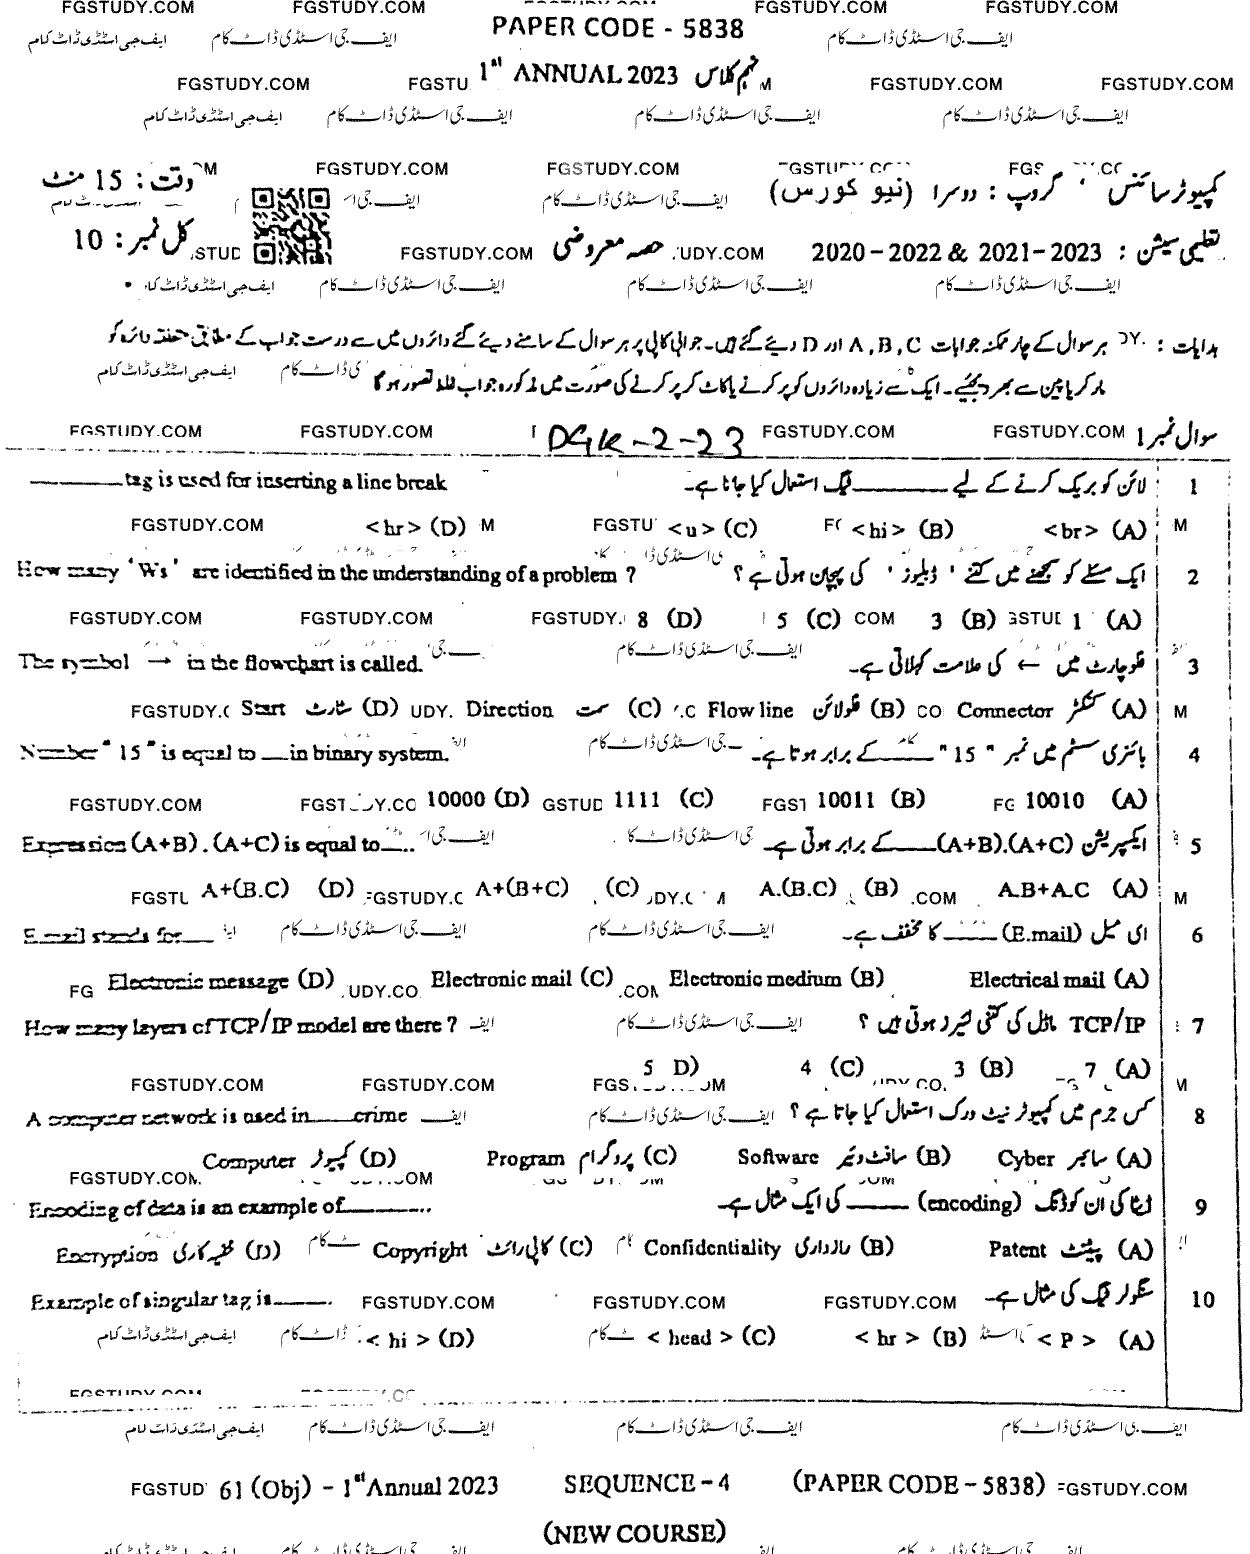 PAPER CODE - 5838
1st ANNUAL 2023 نہم کلاس
کمپیوٹر سائنس ، گروپ : دوسرا (نیو کورس) وقت : 15 منٹ
تعلیمی سیشن : 2021-2023 & 2020-2022 حصہ معروضی کل نمبر : 10
ہدایات : ہر سوال کے چار ممکنہ جوابات A, B, C اور D دیئے گئے ہیں۔ جوابی کاپی پر ہر سوال کے سامنے دیئے گئے دائروں میں سے درست جواب کے مطابق متعلقہ دائرہ کو
مارکر یا پین سے بھر دیجئے۔ ایک سے زیادہ دائروں کو پر کرنے یا کاٹ کر پر کرنے کی صورت میں مذکورہ جواب غلط تصور ہو گا
سوال نمبر 1 DGK-2-23
1 لائن کو بریک کرنے کے لیے ______ ٹیگ استعمال کیا جاتا ہے۔ ______ tag is used for inserting a line break
(A) <br> (B) <hi> (C) <u> (D) <hr>
2 ایک مسئلے کو سمجھنے میں کتنے ' ڈبلیوز ' کی پہچان ہوتی ہے ؟ How many 'Ws' are identified in the understanding of a problem ?
(A) 1 (B) 3 (C) 5 (D) 8
3 فلوچارٹ میں ← کی علامت کہلاتی ہے۔ The symbol → in the flowchart is called.
(A) کنکٹر Connector (B) فلولائن Flow line (C) سمت Direction (D) سٹارٹ Start
4 بائنری سسٹم میں نمبر " 15 " ____ کے برابر ہوتا ہے۔ Number " 15 " is equal to __ in binary system.
(A) 10010 (B) 10011 (C) 1111 (D) 10000
5 ایکسپریشن (A+B).(A+C) ____ کے برابر ہوتی ہے۔ Expression (A+B).(A+C) is equal to ___.
(A) A.B+A.C (B) A.(B.C) (C) A+(B+C) (D) A+(B.C)
6 ای میل (E.mail) ____ کا مخفف ہے۔ E.mail stands for ____
(A) Electrical mail (B) Electronic medium (C) Electronic mail (D) Electronic message
7 TCP/IP ماڈل کی کتنی لیئرز ہوتی ہیں ؟ How many layers of TCP/IP model are there ?
(A) 7 (B) 3 (C) 4 D) 5
8 کس جرم میں کمپیوٹر نیٹ ورک استعمال کیا جاتا ہے ؟ A computer network is used in ____ crime
(A) سائبر Cyber (B) سافٹ ویئر Software (C) پروگرام Program (D) کمپیوٹر Computer
9 ڈیٹا کی ان کوڈنگ (encoding) _____ کی ایک مثال ہے۔ Encoding of data is an example of ______.
(A) پیٹنٹ Patent (B) رازداری Confidentiality (C) کاپی رائٹ Copyright (D) خفیہ کاری Encryption
10 سنگولر ٹیگ کی مثال ہے۔ Example of singular tag is _____.
(A) < P > (B) < hr > (C) < head > (D) < hi >
61 (Obj) - 1st Annual 2023 SEQUENCE - 4 (PAPER CODE - 5838)
(NEW COURSE)
FGSTUDY.COM
ایف جی اسٹڈی ڈاٹ کام